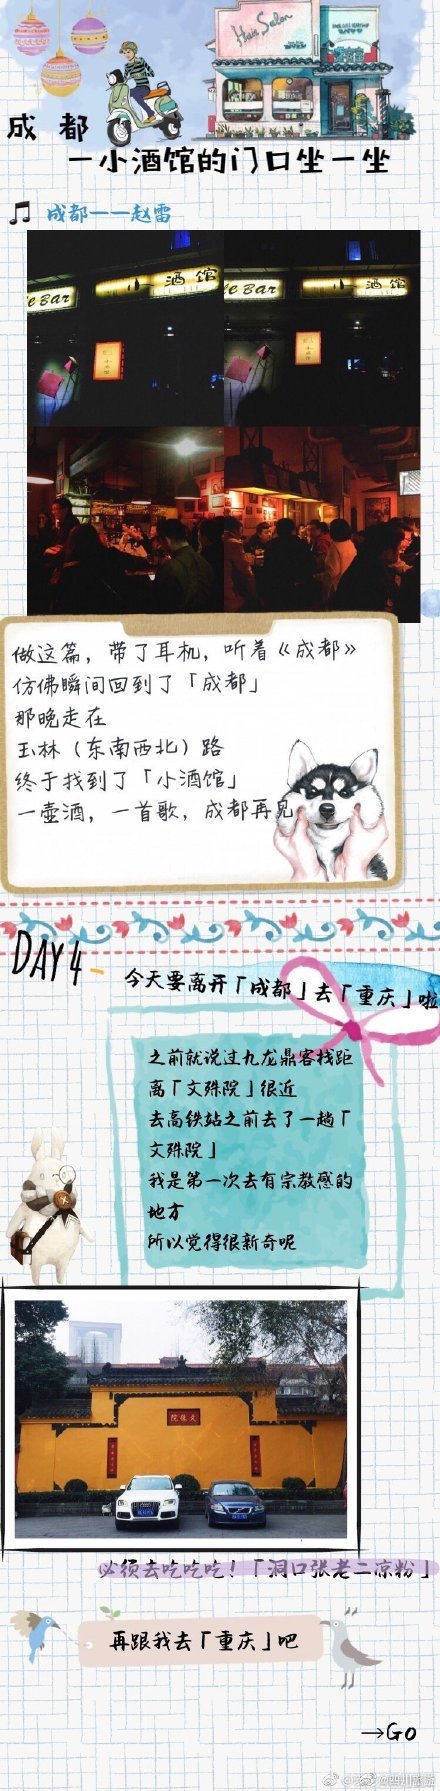 Hair Salon
成都
一小酒馆的门口坐一坐
成都——赵雷
fe Bar
小酒馆
fe Bar
小酒馆
小酒馆
小酒馆
做这篇，带了耳机，听着《成都》
仿佛瞬间回到了「成都」
那晚走在
玉林（东南西北）路
终于找到了「小酒馆」
一壶酒，一首歌，成都再见
DAY 4
今天要离开「成都」去「重庆」啦
之前就说过九龙鼎客栈距
离「文殊院」很近
去高铁站之前去了一趟「
文殊院」
我是第一次去有宗教感的
地方
所以觉得很新奇呢
院殊文
必须去吃吃吃！「洞口张老二凉粉」
再跟我去「重庆」吧
→Go
@四川旅游